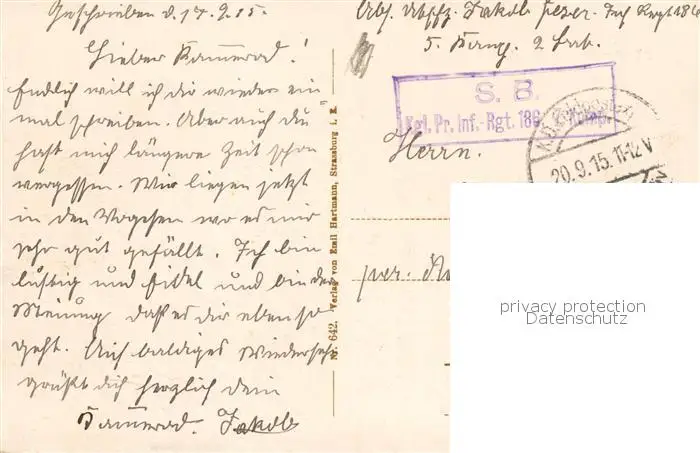 Geschrieben d. 17.9.15.
Lieber Kamerad!
Endlich will ich dir wieder ein
mal schreiben. Aber auch du
hast mich längere Zeit schon
vergessen. Wir liegen jetzt
in den Vogesen wo es mir
sehr gut gefällt. Ich bin
lustig und fidel und bin der
Meinung daß es dir ebenso
geht. Auf baldiges Wiederseh
grüßt dich herzlich dein
Kamerad. Jakob
Nr. 642. Verlag von Emil Hartmann, Strassburg i. E.
Abs. Jakob Inf. Regt 186
5. Komp. 2 Bat.
S. B.
Kgl. Pr. Inf.-Rgt. 186
20.9.15.11-12V
Herrn.
per.
privacy protection
Datenschutz